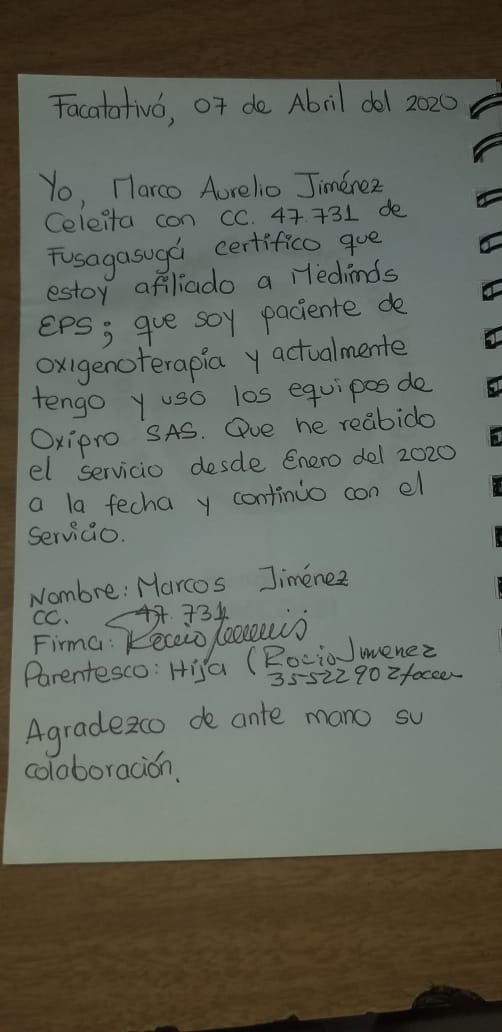 Facatativá, 07 de Abril del 2020
Yo, Marco Aurelio Jiménez
Celeita con CC. 47.731 de
Fusagasugá certifico que
estoy afiliado a Medimás
EPS; que soy paciente de
oxigenoterapia y actualmente
tengo y uso los equipos de
Oxipro SAS. Que he recibido
el servicio desde Enero del 2020
a la fecha y continúo con el
servicio.
Nombre: Marcos Jiménez
CC. 47.731
Firma: Rocio
Parentesco: Hija (Rocio Jimenez
35522902
Agradezco de ante mano su
colaboración.